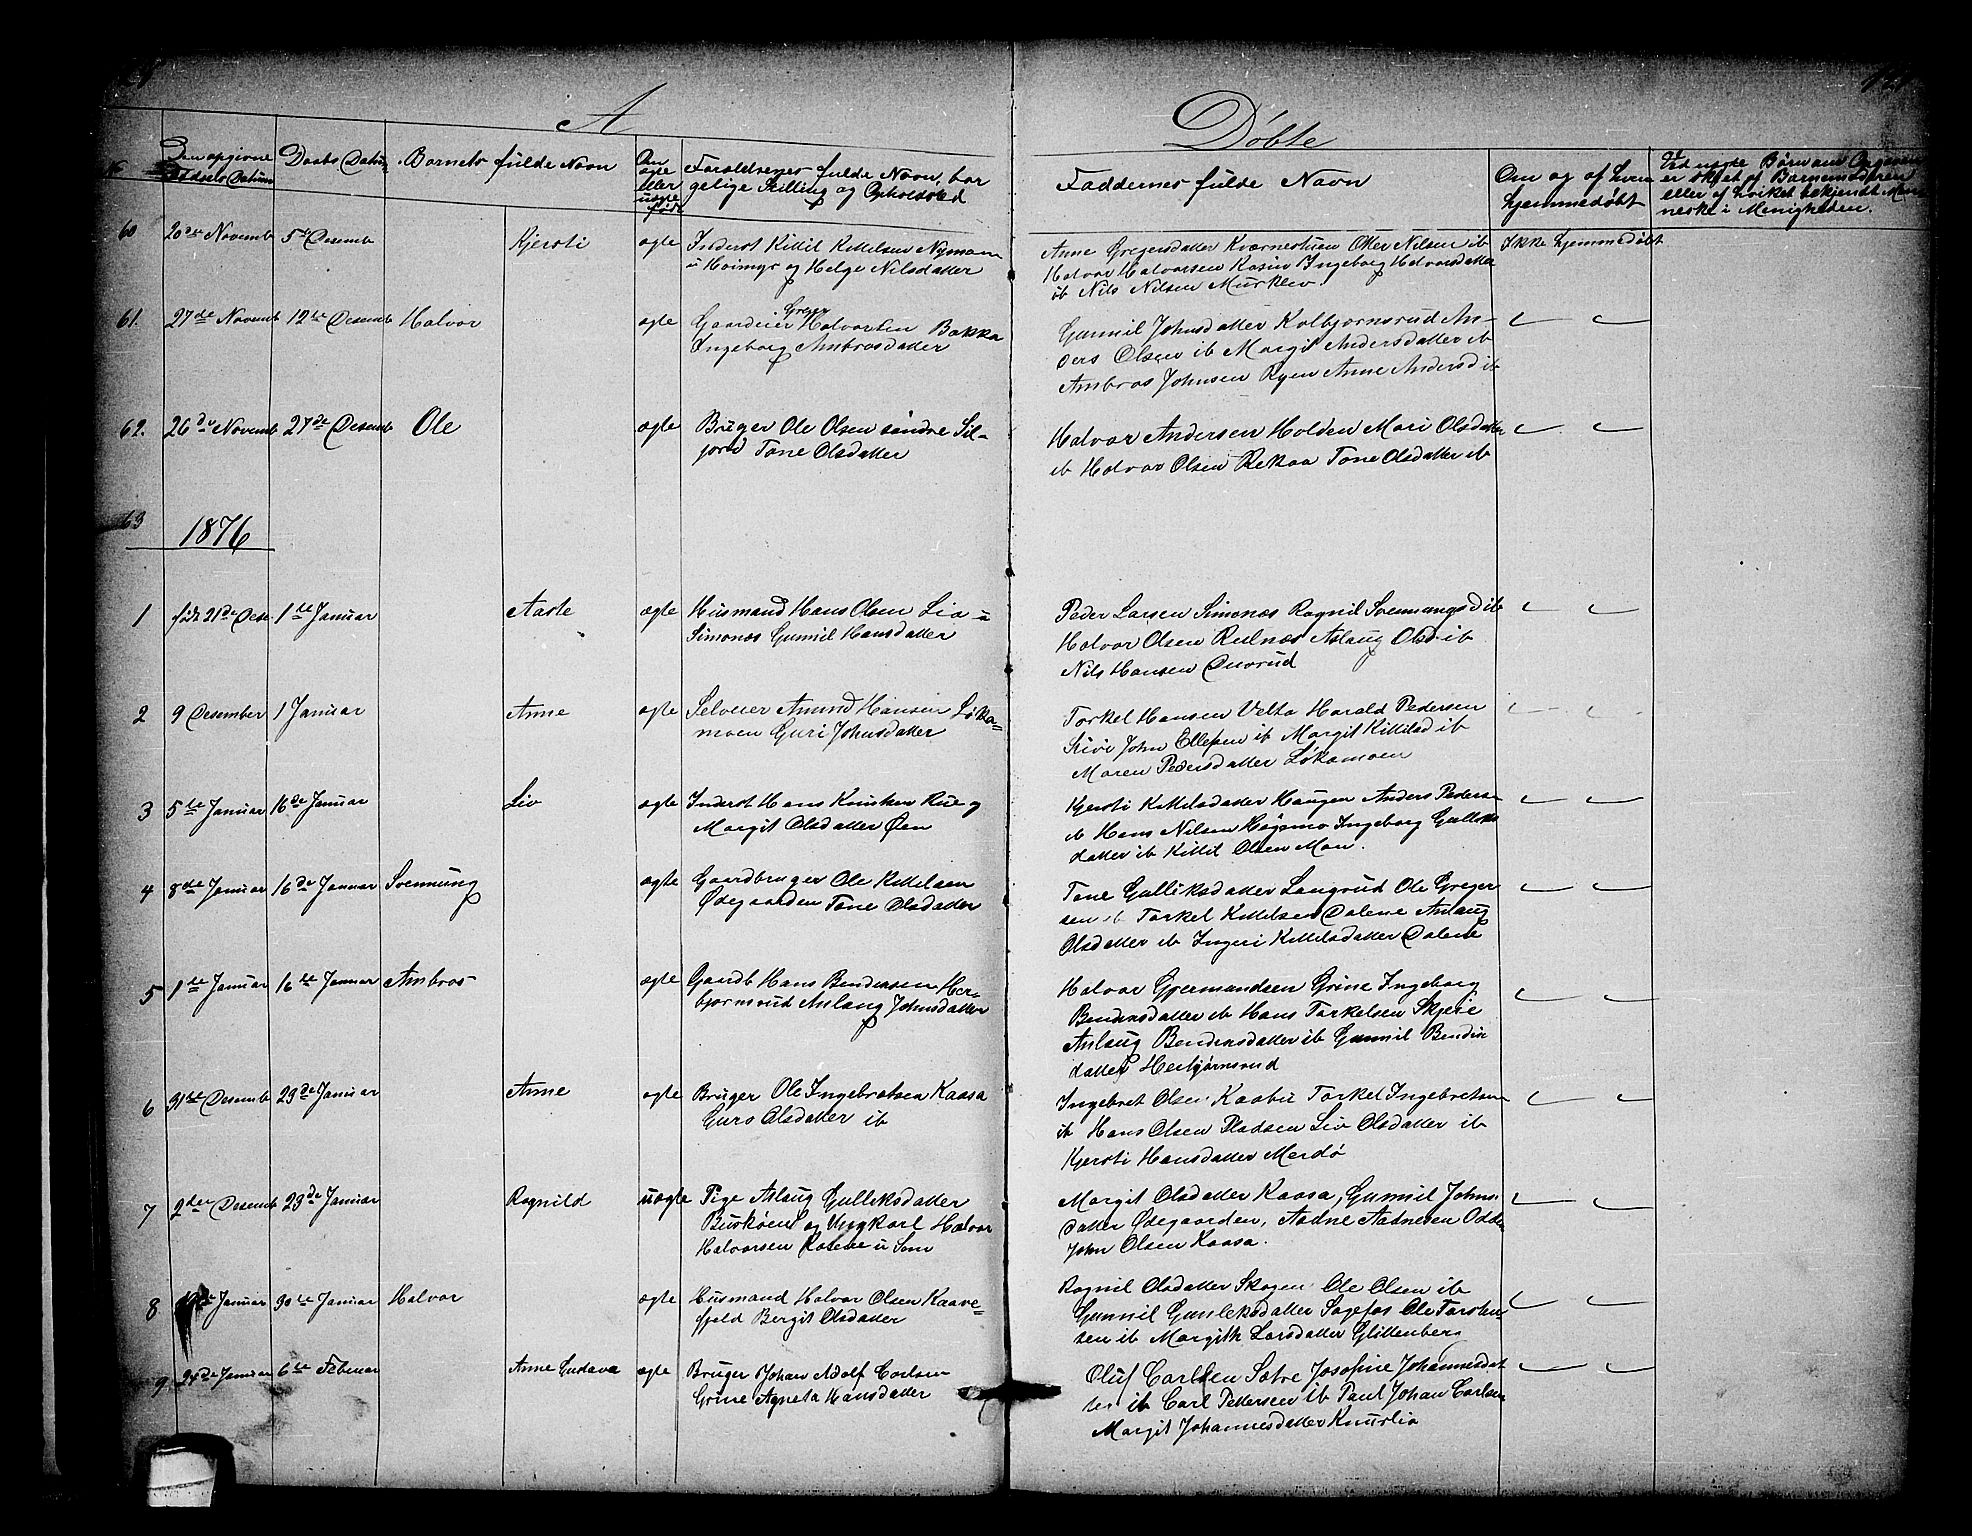 A
Døbte
Den opgivne Fødsels Datum
Daabs Datum
Barnets fulde Navn
Om ægte eller uægte født
Forældrenes fulde Navn, bor
gelige Stilling og Opholdsted
Faddernes fulde Navn
Om og af hvem
hjemmedøbt
Ved uægte Børn om Opgaven
er skjet af Barnemoderen
eller af hvilket bekjendt Men
neske i Menigheden.
60 20de Novemb 5te Desemb Kjersti ægte Inderst Kittil Kittelsen Nymoen
u Hoimyr og Helge Nilsdatter
Anne Gregersdatter Kværnestuen Otter Nilsen ib Ikke hjemmedøbt
Halvor Halvorsen Rosin Ingeborg Halvorsdatter
ib Nils Nilsen Murklev.
61. 27de Novemb 12te Desemb Halvor ægte Gaardeier Greger Halvorsen Bakka
Ingeborg Ambrosdatter
Gunnil Johnsdatter Kolbjørnsrud An-
ders Olsen ib Margit Andersdatter ib
Ambros Johnsen Ryen Anne Andersd ib
62. 26de Novemb 27de Desemb Ole ægte Bruger Ole Olsen søndre Sil-
jord Tone Olsdatter
Halvor Andersen Holden Mari Olsdatter
ib Halvor Olsen Rekaa Tone Olsdatter ib
63
1876
1 født 21de Dese 1te Januar Aaste ægte Husmand Hans Olsen Lia u
Simonæs Gunnil Hansdatter
Peder Larsen Simonæs Ragnil Svennungsd ib
Halvor Olsen Rulnæs Aslaug Olsd ib
Nils Hansen Duvrud
2 9 Desember 1 Januar Anne ægte Selveier Amund Hansen Løka-
moen Guri Johnsdatter
Torkel Hansen Velta Harald Pedersen
John Ellefsen ib Margit Kittilsd ib
Maren Pedersdatter Løkamoen
3 5te Januar 16de Januar Liv ægte Inderst Hans Knutsen Rue og
Margit Olsdatter Øen
Kjersti Kittilsdatter Haugen Anders Peders-
ib Hans Nilsen Høgamo Ingeborg Gulliks
datter ib Kittil Olsen Moen.
4 8de Januar 16de Januar Svennung ægte Gaardbruger Ole Kittelsen
Ødegaarden Tone Olsdatter
Tone Gulliksdatter Langrud Ole Greger
sen ib Torkel Kittelsen Dalene Aslaug
Olsdatter ib Ingeri Kittelsdatter Dalene
5 1te Januar 16te Januar Ambros ægte Gaardb Hans Bendixsen Her-
bjørnsrud Aslaug Johnsdatter
Halvor Gjermundsen Grine Ingeborg
Bendixsdatter ib Hans Torkelsen Skjerve
Aslaug Bendixsdatter ib Gunnil Bendix
datter Herbjørnsrud
6 31te Desemb 29de Januar Anne ægte Bruger Ole Ingebretsen Kaasa
Guro Olsdatter ib
Ingebret Olsen Kaabu Torkel Ingebretsen
ib Hans Olsen Pladsen Liv Olsdatter ib
Kjersti Hansdatter Merdø
7 2den Desemb 29de Januar Ragnild uægte Pige Aslaug Gulliksdatter
Buskøen og Ungkarl Halvor
Halvorsen
Margit Olsdatter Kaasa, Gunnil Johns
datter Ødegaarden, Aadne Aadnesen
John Olsen Kaasa.
8 Januar 30te Januar Halvor ægte Husmand Halvor Olsen Kaave-
fjeld Bergit Olsdatter
Ragnil Olsdatter Skogen Ole Olsen ib
Gunnil Gunleksdatter Sagefos Ole Torsten-
sen ib Margith Larsdatter Glittenberg
9 24de Januar 6te Februar Anne Gustava ægte Bruger Johan Adolf Carlsen
Grine Agneta Hansdatter
Oluf Carlsen Sætre Josefine Johannesdat
ter ib Carl Pettersen ib Paul Johan Carlsen
Margit Johannesdatter Knutslia